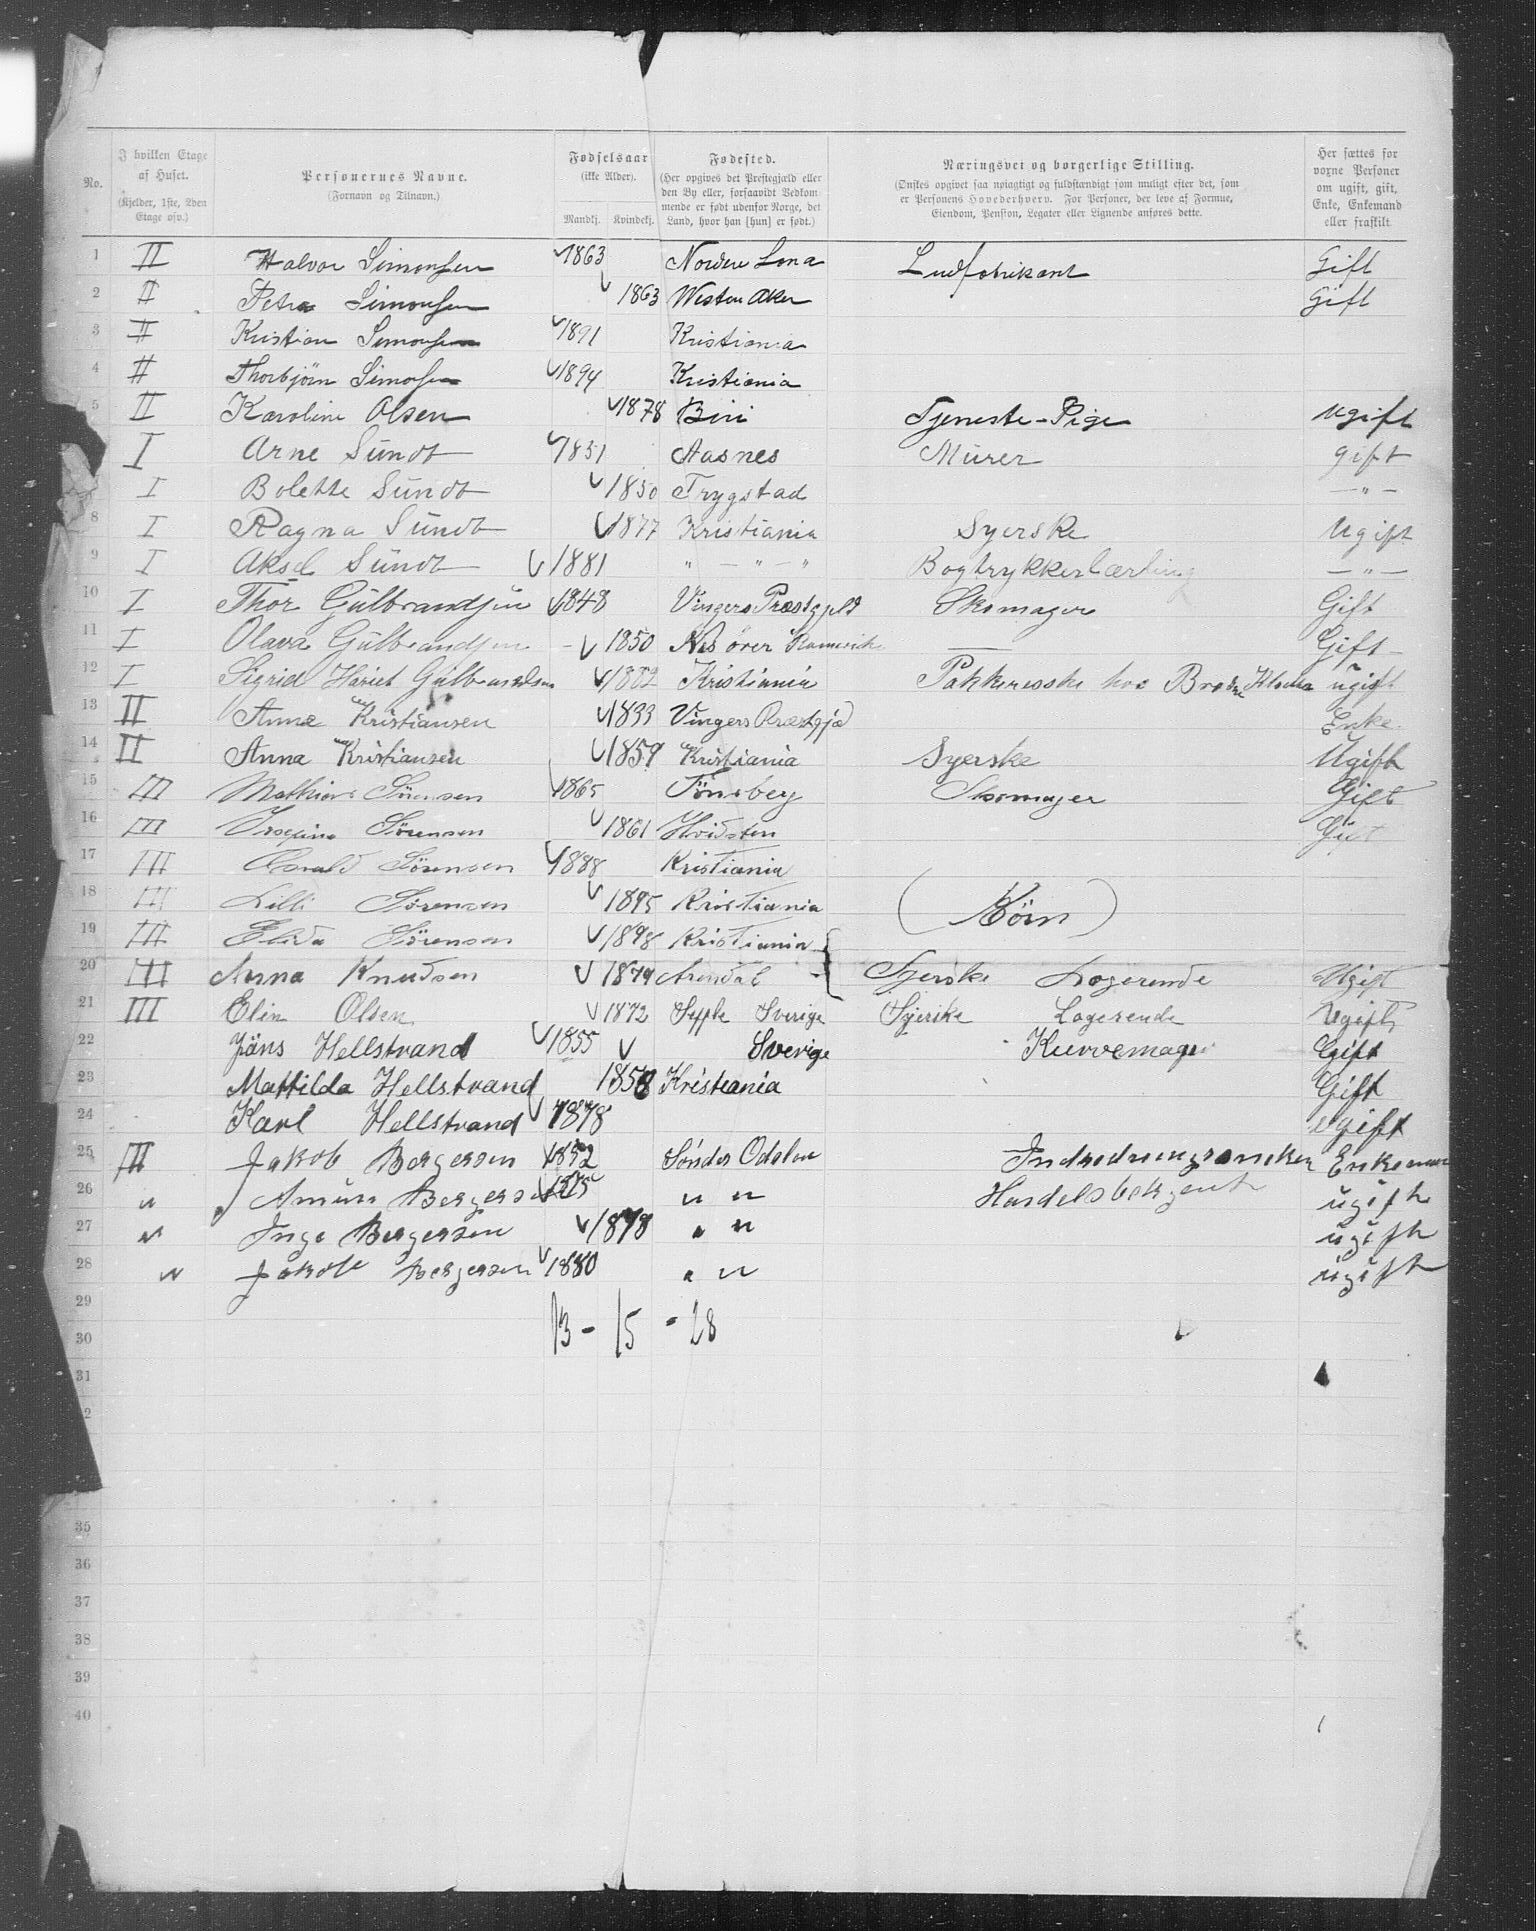 No. | I hvilken Etage af Huset. (Kjelder, 1ste, 2den Etage osv.) | Personernes Navne. (Fornavn og Tilnavn.) | Fødselsaar (ikke Alder). Mandkj. Kvindekj. | Fødested. (Her opgives det Prestegjæld eller den By eller, forsaavidt Vedkommende er født udenfor Norge, det Land, hvor han [hun] er født.) | Næringsvei og borgerlige Stilling. (Ønskes opgivet saa nøiagtigt og fuldstændigt som muligt efter det, som er Personens Hovederhverv. For Personer, der leve af Formue, Eiendom, Pension, Legater eller Lignende anføres dette. | Her sættes for voxne Personer om ugift, gift, Enke, Enkemand eller fraskilt.
1 II Halvor Simonsen 1863 Nordre Gift
2 II Petra Simonsen 1863 Westen Aker Gift
3 II Kristian Simonsen 1891 Kristiania
4 II Thorbjörn Simonsen 1894 Kristiania
5 II Karoline Olsen 1878 Biri Tjeneste-Pige Ugift
I Arne Sundt 1851 Aasnes Murer gift
I Bolette Sundt 1850 Trygstad — " —
8 I Ragna Sundt 1877 Kristiania Syerske Ugift
9 I Aksel Sundt 1881 " — " — " Bogtrykkerlærling — " —
10 I Thor Gulbrandsen 1848 Vingers Præstgjeld Skomager Gift
11 I Olava Gulbrandsen 1850 Nes över Romerike — Gift
12 I Sigrid Hariet Gulbrandsen 1882 Kristiania Pakkerske hos Brødre ugift
13 II Anna Kristiansen 1833 Vingers Præstgjæd Enke
14 II Anna Kristiansen 1859 Kristiania Syerske Ugift
15 III Mathias Sörensen 1865 Tönsberg Skomager Gift
16 III Sörensen 1861 Hvidsten Gift
17 III Sörensen 1888 Kristiania
18 III Lilli Sörensen 1895 Kristiania (Börn)
19 III Elida Sörensen 1898 Kristiania
20 III Anna Knudsen 1874 Arendal Syerske Logerende Ugift
21 III Elin Olsen 1872 Sverige Syerske Logerende Ugift
22 Jöns Hellstrand 1855 Sverige Kurvemager Gift
23 Mathilda Hellstrand 1858 Kristiania Gift
24 Karl Hellstrand 1878 ugift
25 III Jakob Bergersen 1852 Sönder Odalen Enkemand
26 " Bergersen 1875 " " Handelsbetjent ugift
27 " Inga Bergersen 1878 " " ugift
28 " Jakob Bergersen 1880 " " ugift
29
13 - 15 - 28
30
31
2
35
36
37
38
39
40